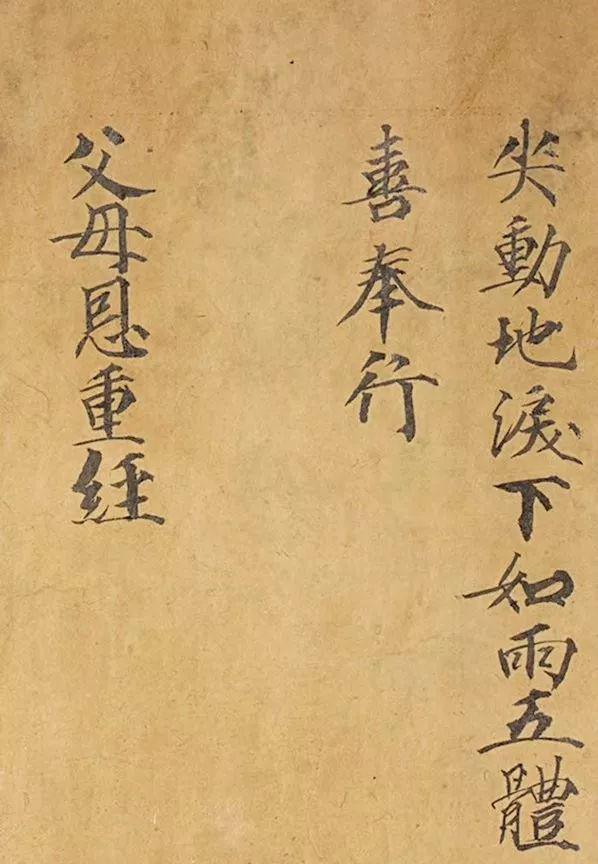 哭動地淚下如雨五體
善奉行
父母恩重經